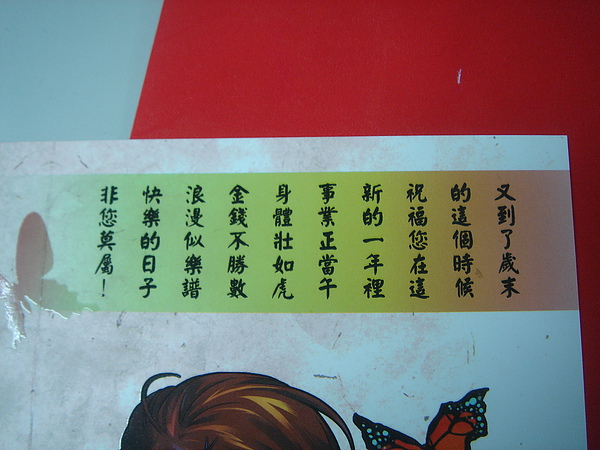 又到了歲末
的這個時候
祝福您在這
新的一年裡
事業正當午
身體壯如虎
金錢不勝數
浪漫似樂譜
快樂的日子
非您莫屬！